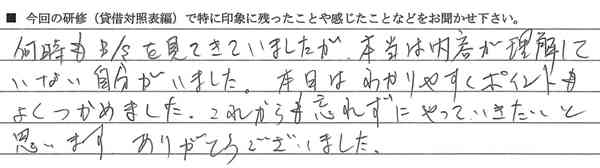 ■ 今回の研修（貸借対照表編）で特に印象に残ったことや感じたことなどをお聞かせ下さい。
何時もB/Sを見てきていましたが、本当は内容が理解して
いない自分がいました。本日はわかりやすくポイントも
よくつかめました。これからも忘れずにやっていきたいと
思います ありがとうございました。